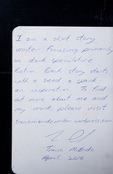 I am a short story
writer focusing primarily
on dark speculative
fiction. Each story starts
with a seed, a spark
an inspiration. To find
out more about me and
my work please visit
Thomas McBride
April 2016